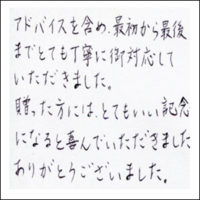 アドバイスを含め、最初から最後
までとても丁寧に御対応して
いただきました。
贈った方には、とてもいい記念
になると喜んでいただきました
ありがとうございました。